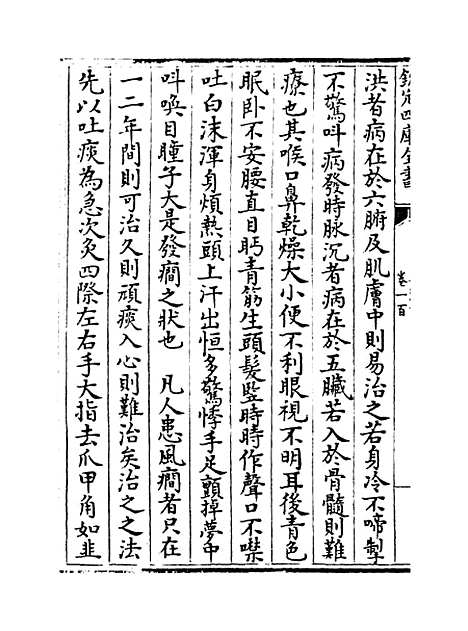 欽定四庫全書
卷一百
洪者病在於六腑及肌膚中則易治之若身冷不啼掣
不驚呌病發時脉沉者病在於五臟若入於骨髓則難
療也其喉口鼻乾燥大小便不利眼視不明耳後青色
眠卧不安腰直目眄青筋生頭髮豎時時作聲口不噤
吐白沫渾身煩熱頭上汗出恒多驚悸手足顫掉夢中
呌喚目瞳子大是發癎之狀也 凡人患風癎者只在
一二年間則可治久則頑痰入心則難治矣治之之法
先以吐痰為急次灸四際左右手大指去爪甲角如韭